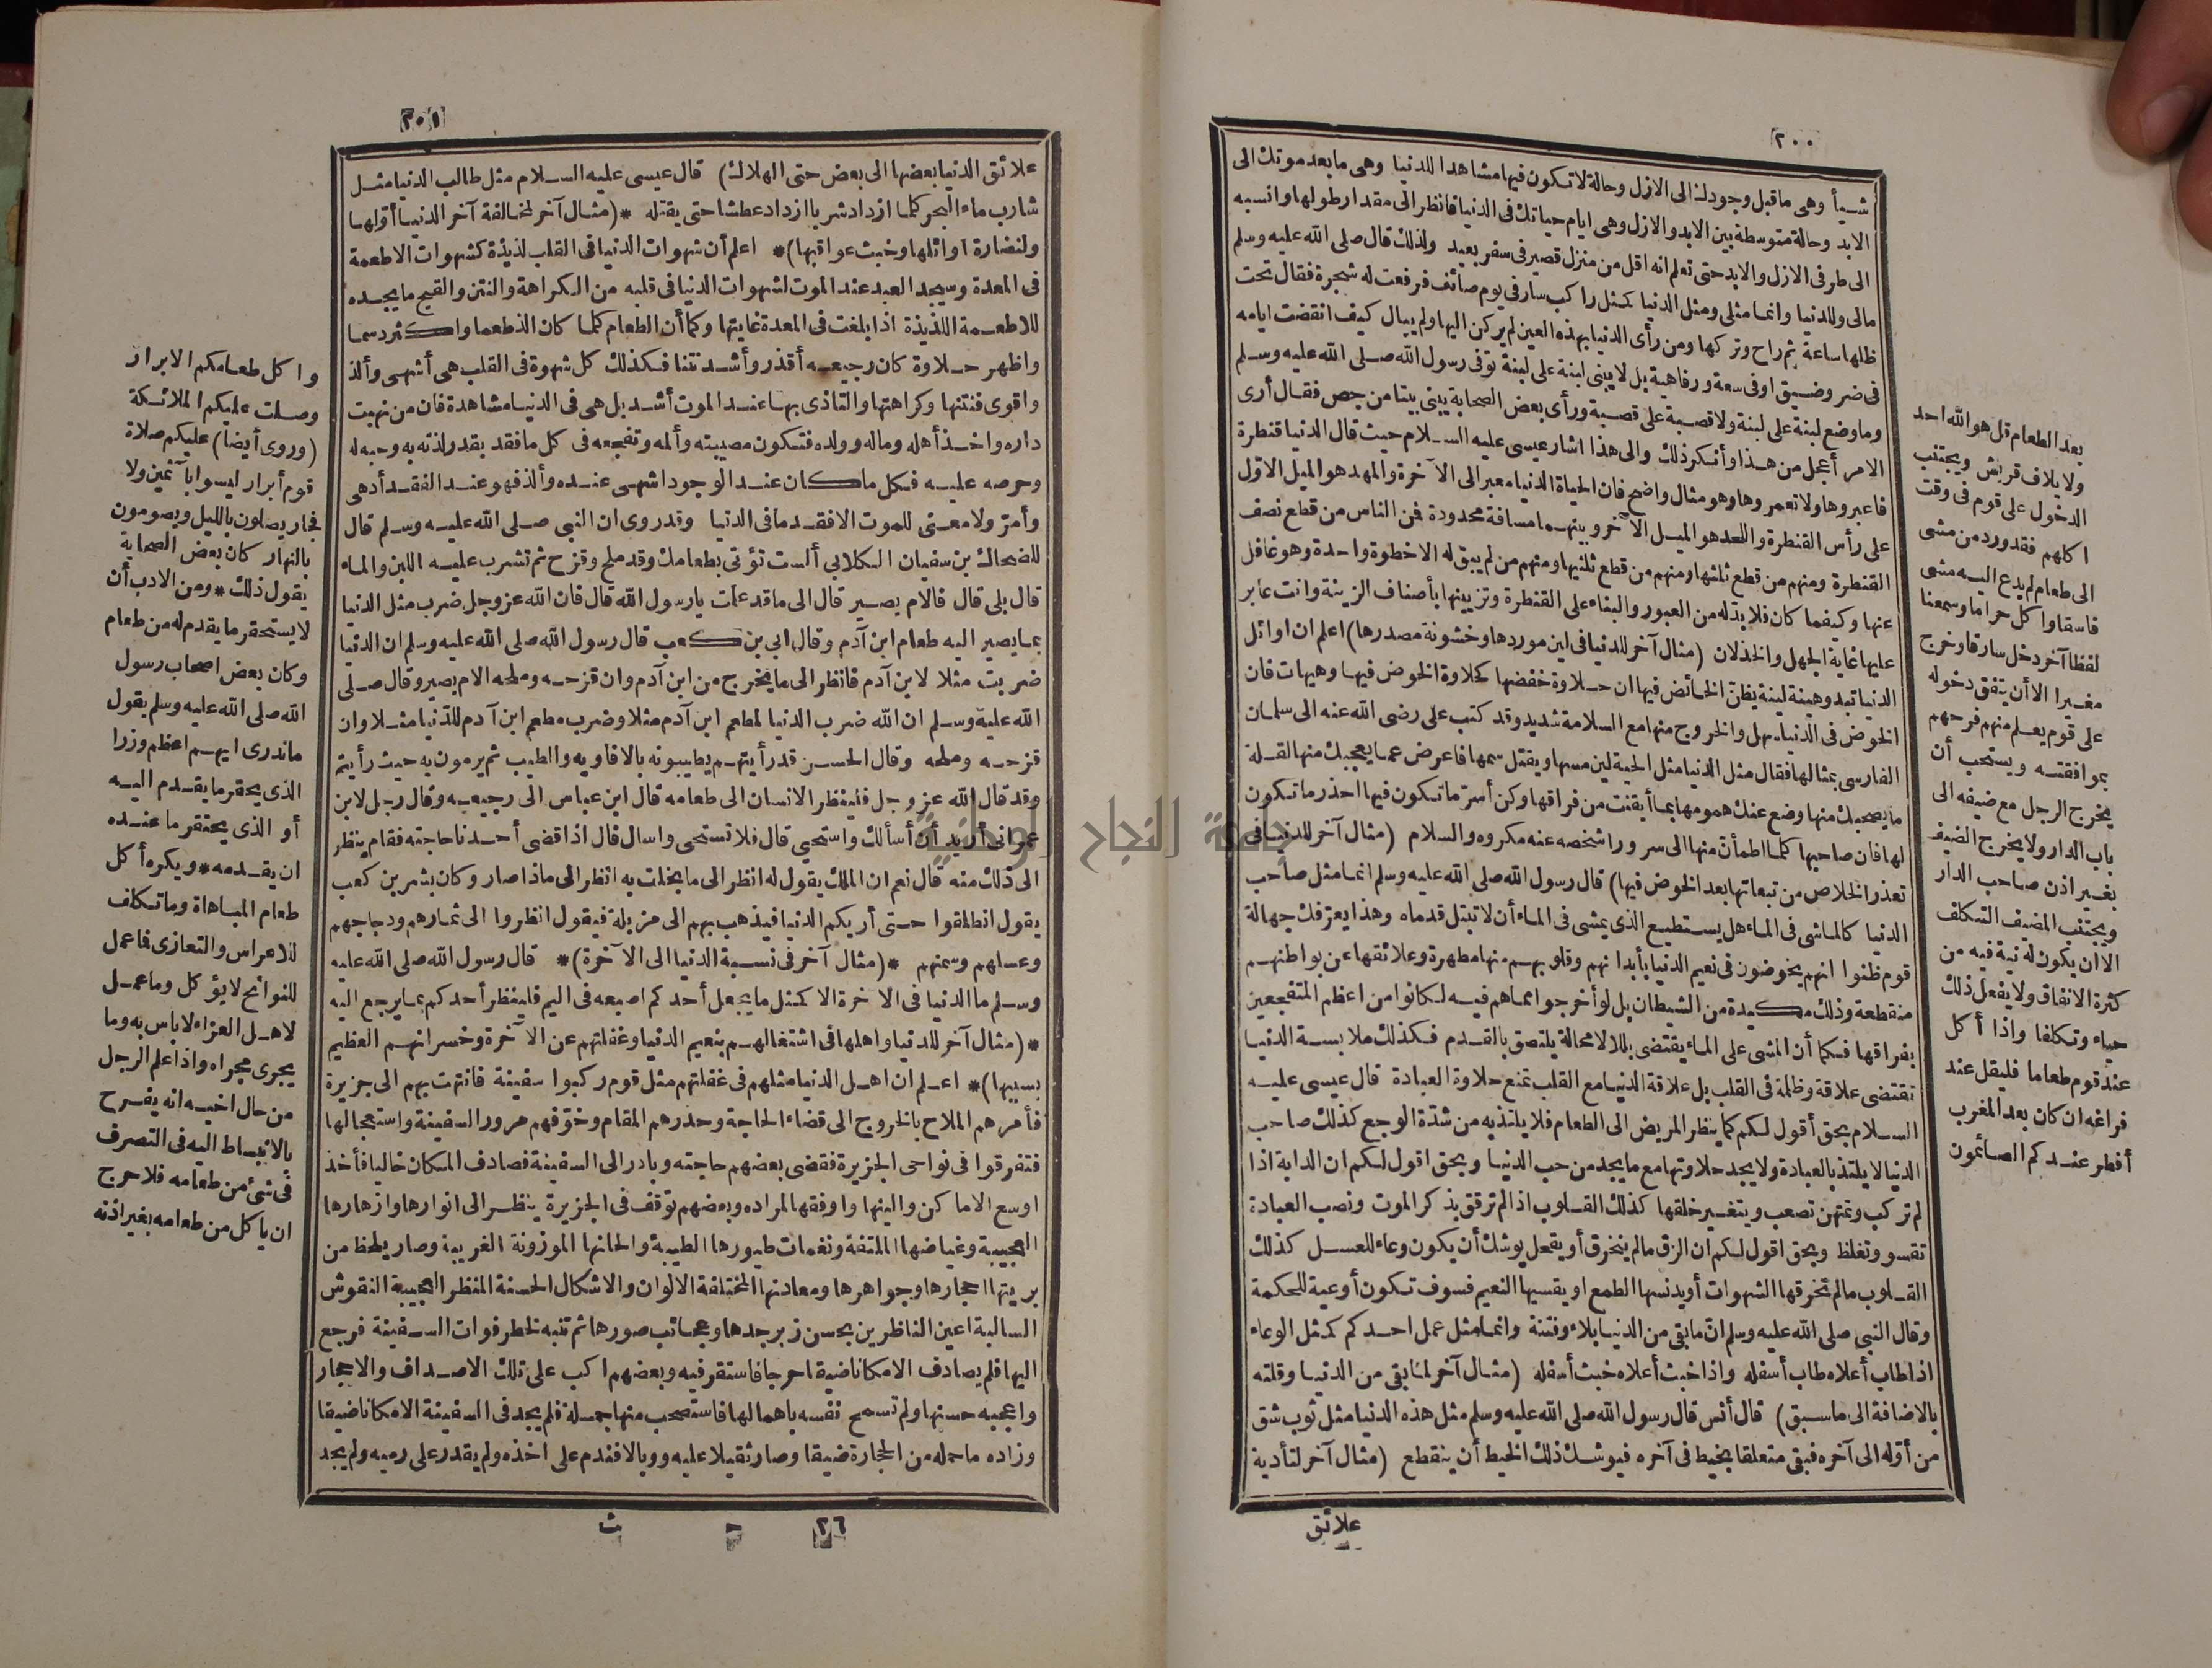 ٢٠٠
شيأ وهى ماقبل وجودك الى الازل وحالة لاتكون فيها مشاهدا للدنيا وهى مابعد موتك الى
الابد وحالة متوسطة بين الابد والازل وهى ايام حياتك فى الدنيا فانظر الى مقدار طولها وانسبه
الى طرفى الازل والابد حتى تعلم انه اقل من منزل قصير فى سفر بعيد ولذلك قال صلى الله عليه وسلم
مالى وللدنيا وانما مثلى ومثل الدنيا كمثل راكب سار فى يوم صائف فرفعت له شجرة فقال تحت
ظلها ساعة ثم راح وتركها ومن رأى الدنيا بهذه العين لم يركن اليها ولم يبال كيف انقضت ايامه
فى ضر وضيق او فى سعة ورفاهية بل لا يبنى لبنة على لبنة توفى رسول الله صلى الله عليه وسلم
وماوضع لبنة على لبنة ولا قصبة على قصبة ورأى بعض الصحابة يبنى بيتا من جص فقال أرى
الامر أعجل من هذا وأنكر ذلك والى هذا اشار عيسى عليه السلام حيث قال الدنيا قنطرة
فاعبروها ولا تعمروها وهو مثال واضح فان الحياة الدنيا معبر الى الآخرة والمهد هو الميل الاوّل
على رأس القنطرة واللحد هو الميل الآخر وبينهما مسافة محدودة فمن الناس من قطع نصف
القنطرة ومنهم من قطع ثلثها ومنهم من قطع ثلثيها ومنهم من لم يبق له الا خطوة واحدة وهو غافل
عنها وكيفما كان فلا بدّ له من العبور والبناء على القنطرة وتزيينها بأصناف الزينة وانت عابر
عليها غاية الجهل والخذلان (مثال آخر للدنيا فى لين موردها وخشونة مصدرها) اعلم ان اوائل
الدنيا تبدو هينة لينة يظنّ الخائض فيها ان حلاوة خفضها كحلاوة الخوض فيها وهيهات فان
الخوض فى الدنيا سهل والخروج منها مع السلامة شديد وقد كتب على رضى الله عنه الى سلمان
الفارسى بمثالها فقال مثل الدنيا مثل الحية لين مسها ويقتل سمها فاعرض عما يعجبك منها لقلة
ما يصحبك منها وضع عنك همومها بما أيقنت من فراقها وكن أسرّ ما تكون فيها احذر ما تكون
لها فان صاحبها كلما اطمأن منها الى سرور اشخصه عنه مكروه والسلام (مثال آخر للدنيا فى
تعذر الخلاص من تبعاتها بعد الخوض فيها) قال رسول الله صلى الله عليه وسلم انما مثل صاحب
الدنيا كالماشى فى الماء هل يستطيع الذى يمشى فى الماء أن لا تبتل قدماه وهذا يعرّفك جهالة
قوم ظنوا انهم يخوضون فى نعيم الدنيا بأبدانهم وقلوبهم منها مطهرة وعلائقها عن بواطنهم
منقطعة وذلك مكيدة من الشيطان بل لو أخرجوا مما هم فيه لكانوا من اعظم المتفجعين
بفراقها فكما أن المشى على الماء يقتضى بللا لا محالة يلتصق بالقدم فكذلك ملابسة الدنيا
تقتضى علاقة وظلمة فى القلب بل علاقة الدنيا مع القلب تمنع حلاوة العبادة قال عيسى عليه
السلام بحق أقول لكم كما ينظر المريض الى الطعام فلا يلتذ به من شدّة الوجع كذلك صاحب
الدنيا لا يلتذ بالعبادة ولا يجد حلاوتها مع ما يجد من حب الدنيا وبحق اقول لكم ان الدابة اذا
لم تركب وتمتهن تصعب ويتغير خلقها كذلك القلوب اذا لم ترقق بذكر الموت ونصب العبادة
تقسو وتغلظ وبحق اقول لكم ان الزق مالم ينخرق أو يقحل يوشك أن يكون وعاء للعسل كذلك
القلوب مالم تخرقها الشهوات أو يدنسها الطمع او يقسيها النعيم فسوف تكون أوعية للحكمة
وقال النبى صلى الله عليه وسلم انّ مابقى من الدنيا بلاء وفتنة وانما مثل عمل احدكم كمثل الوعاء
اذا طاب أعلاه طاب أسفله واذا خبث أعلاه خبث أسفله (مثال آخر لما بقى من الدنيا وقلته
بالاضافة الى ماسبق) قال أنس قال رسول الله صلى الله عليه وسلم مثل هذه الدنيا مثل ثوب شق
من أوّله الى آخره فبقى متعلقا بخيط فى آخره فيوشك ذلك الخيط أن ينقطع (مثال آخر لتأدية
علائق
بعد الطعام قل هو الله احد
ولا يلاف قريش ويجتنب
الدخول على قوم فى وقت
اكلهم فقد ورد من مشى
الى طعام لم يدع اليه مشى
فاسقا واكل حراما وسمعنا
لفظا آخر دخل سارقا وخرج
مغيرا الا أن يتفق دخوله
على قوم يعلم منهم فرحهم
بموافقته ويستحب أن
يخرج الرجل مع ضيفه الى
باب الدار ولا يخرج الضيف
بغير اذن صاحب الدار
ويجتنب المضيف التكلف
الا ان يكون له نية فيه من
كثرة الانفاق ولا يفعل ذلك
حياء وتكلفا واذا أكل
عند قوم طعاما فليقل عند
فراغه ان كان بعد المغرب
أفطر عندكم الصائمون
٢٠١
علائق الدنيا بعضها الى بعض حتى الهلاك) قال عيسى عليه السلام مثل طالب الدنيا مثل
شارب ماء البحر كلما ازداد شربا ازداد عطشا حتى يقتله *(مثال آخر لمخالفة آخر الدنيا أوّلها
ولنضارة اوائلها وخبث عواقبها)* اعلم أن شهوات الدنيا فى القلب لذيذة كشهوات الاطعمة
فى المعدة وسيجد العبد عند الموت لشهوات الدنيا فى قلبه من الكراهة والنتن والقبح ما يجده
للاطعمة اللذيذة اذا بلغت فى المعدة غايتها وكما أن الطعام كلما كان الذ طعما واكثر دسما
واظهر حلاوة كان رجيعه أقذر وأشد نتنا فكذلك كل شهوة فى القلب هى أشهى وألذ
واقوى فنتنها وكراهتها والتاذى بها عند الموت أشد بل هى فى الدنيا مشاهدة فان من نهبت
داره واخذ أهله وماله وولده فتكون مصيبته وألمه وتفجعه فى كل ما فقد بقدر لذته به وحبه له
وحرصه عليه فكل ما كان عند الوجود اشهى عنده وألذ فهو عند الفقد أدهى
وأمرّ ولا معنى للموت الا فقد ما فى الدنيا وقد روى ان النبى صلى الله عليه وسلم قال
للضحاك بن سفيان الكلابى ألست تؤتى بطعامك وقد ملح وقزح ثم تشرب عليه اللبن والماء
قال بلى قال فالام يصير قال الى ما قد علمت يارسول الله قال فان الله عز وجل ضرب مثل الدنيا
بما يصير اليه طعام ابن آدم وقال ابى بن كعب قال رسول الله صلى الله عليه وسلم ان الدنيا
ضربت مثلا لابن آدم فانظر الى ما يخرج من ابن آدم وان قزحه وملحه الام يصير وقال صلى
الله عليه وسلم ان الله ضرب الدنيا لمطعم ابن آدم مثلا وضرب مطعم ابن آدم للدّنيا مثلا وان
قزحه وملحه وقال الحسن قد رأيتهم يطيبونه بالافاويه والطيب ثم يرمون به حيث رأيتم
وقد قال الله عز وجل فلينظر الانسان الى طعامه قال ابن عباس الى رجيعه وقال رجل لابن
عمر انى أريد أن أسألك واستحيى قال فلا تستحى واسال قال اذا قضى أحدنا حاجته فقام ينظر
الى ذلك منه قال نعم ان الملك يقول له انظر الى ما بخلت به انظر الى ماذا صار وكان بشر بن كعب
يقول انطلقوا حتى أريكم الدنيا فيذهب بهم الى مزبلة فيقول انظروا الى ثمارهم ودجاجهم
وعسلهم وسمنهم *(مثال آخر فى نسبة الدنيا الى الآخرة)* قال رسول الله صلى الله عليه
وسلم ما الدنيا فى الآخرة الا كمثل ما يجعل أحدكم اصبعه فى اليم فلينظر أحدكم بما يرجع اليه
*(مثال آخر للدنيا واهلها فى اشتغالهم بنعيم الدنيا وغفلتهم عن الآخرة وخسرانهم العظيم
بسببها)* اعلم ان اهل الدنيا مثلهم فى غفلتهم مثل قوم ركبوا سفينة فانتهت بهم الى جزيرة
فأمرهم الملاح بالخروج الى قضاء الحاجة وحذرهم المقام وخوّفهم مرور السفينة واستعجالها
فتفرقوا فى نواحى الجزيرة فقضى بعضهم حاجته وبادر الى السفينة فصادف المكان خاليا فأخذ
اوسع الاماكن والينها واوفقها لمراده وبعضهم توقف فى الجزيرة ينظر الى انوارها وازهارها
العجيبة وغياضها الملتفة ونغمات طيورها الطيبة والحانها الموزونة الغريبة وصار يلحظ من
بريتها احجارها وجواهرها ومعادنها المختلفة الالوان والاشكال الحسنة المنظر العجيبة النقوش
السالبة اعين الناظرين بحسن زبرجدها وعجائب صورها ثم تنبه لخطر فوات السفينة فرجع
اليها فلم يصادف الا مكانا ضيقا حرجا فاستقر فيه وبعضهم اكب على تلك الاصداف والاحجار
واعجبه حسنها ولم تسمح نفسه باهمالها فاستصحب منها جملة فلم يجد فى السفينة الا مكانا ضيقا
وزاده ما حمله من الحجارة ضيقا وصار ثقيلا عليه ووبالا فندم على اخذه ولم يقدر على رميه ولم يجد
٢٦ ح ث
واكل طعامكم الابرار
وصلت عليكم الملائكة
(وروى أيضا) عليكم صلاة
قوم أبرار ليسوا بآثمين ولا
فجار يصلون بالليل ويصومون
بالنهار كان بعض الصحابة
يقول ذلك * ومن الادب أن
لا يستحقر ما يقدم له من طعام
وكان بعض اصحاب رسول
الله صلى الله عليه وسلم يقول
ما ندرى ايهم اعظم وزرا
الذى يحقر ما يقدم اليه
أو الذى يحتقر ما عنده
ان يقدمه * ويكره أكل
طعام المباهاة وما تكلف
للاعراس والتعازى فما عمل
للنوائح لا يؤكل وما عمل
لاهل العزاء لا باس به وما
يجرى مجراه واذا علم الرجل
من حال اخيه انه يفرح
بالانبساط اليه فى التصرف
فى شئ من طعامه فلا حرج
ان ياكل من طعامه بغير اذنه
جامعة النجاح الوطنية